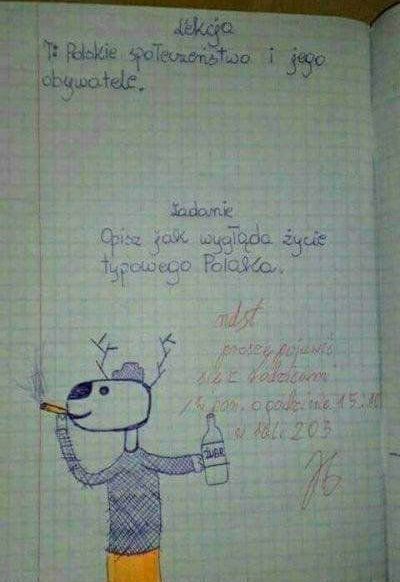 Lekcja
T: Polskie społeczeństwo i jego
obywatele.
Zadanie
Opisz jak wygląda życie
typowego Polaka.
ndst
proszę pojawić
się z rodzicami
o godzinie 15:10
w sali 203
ŻUBR